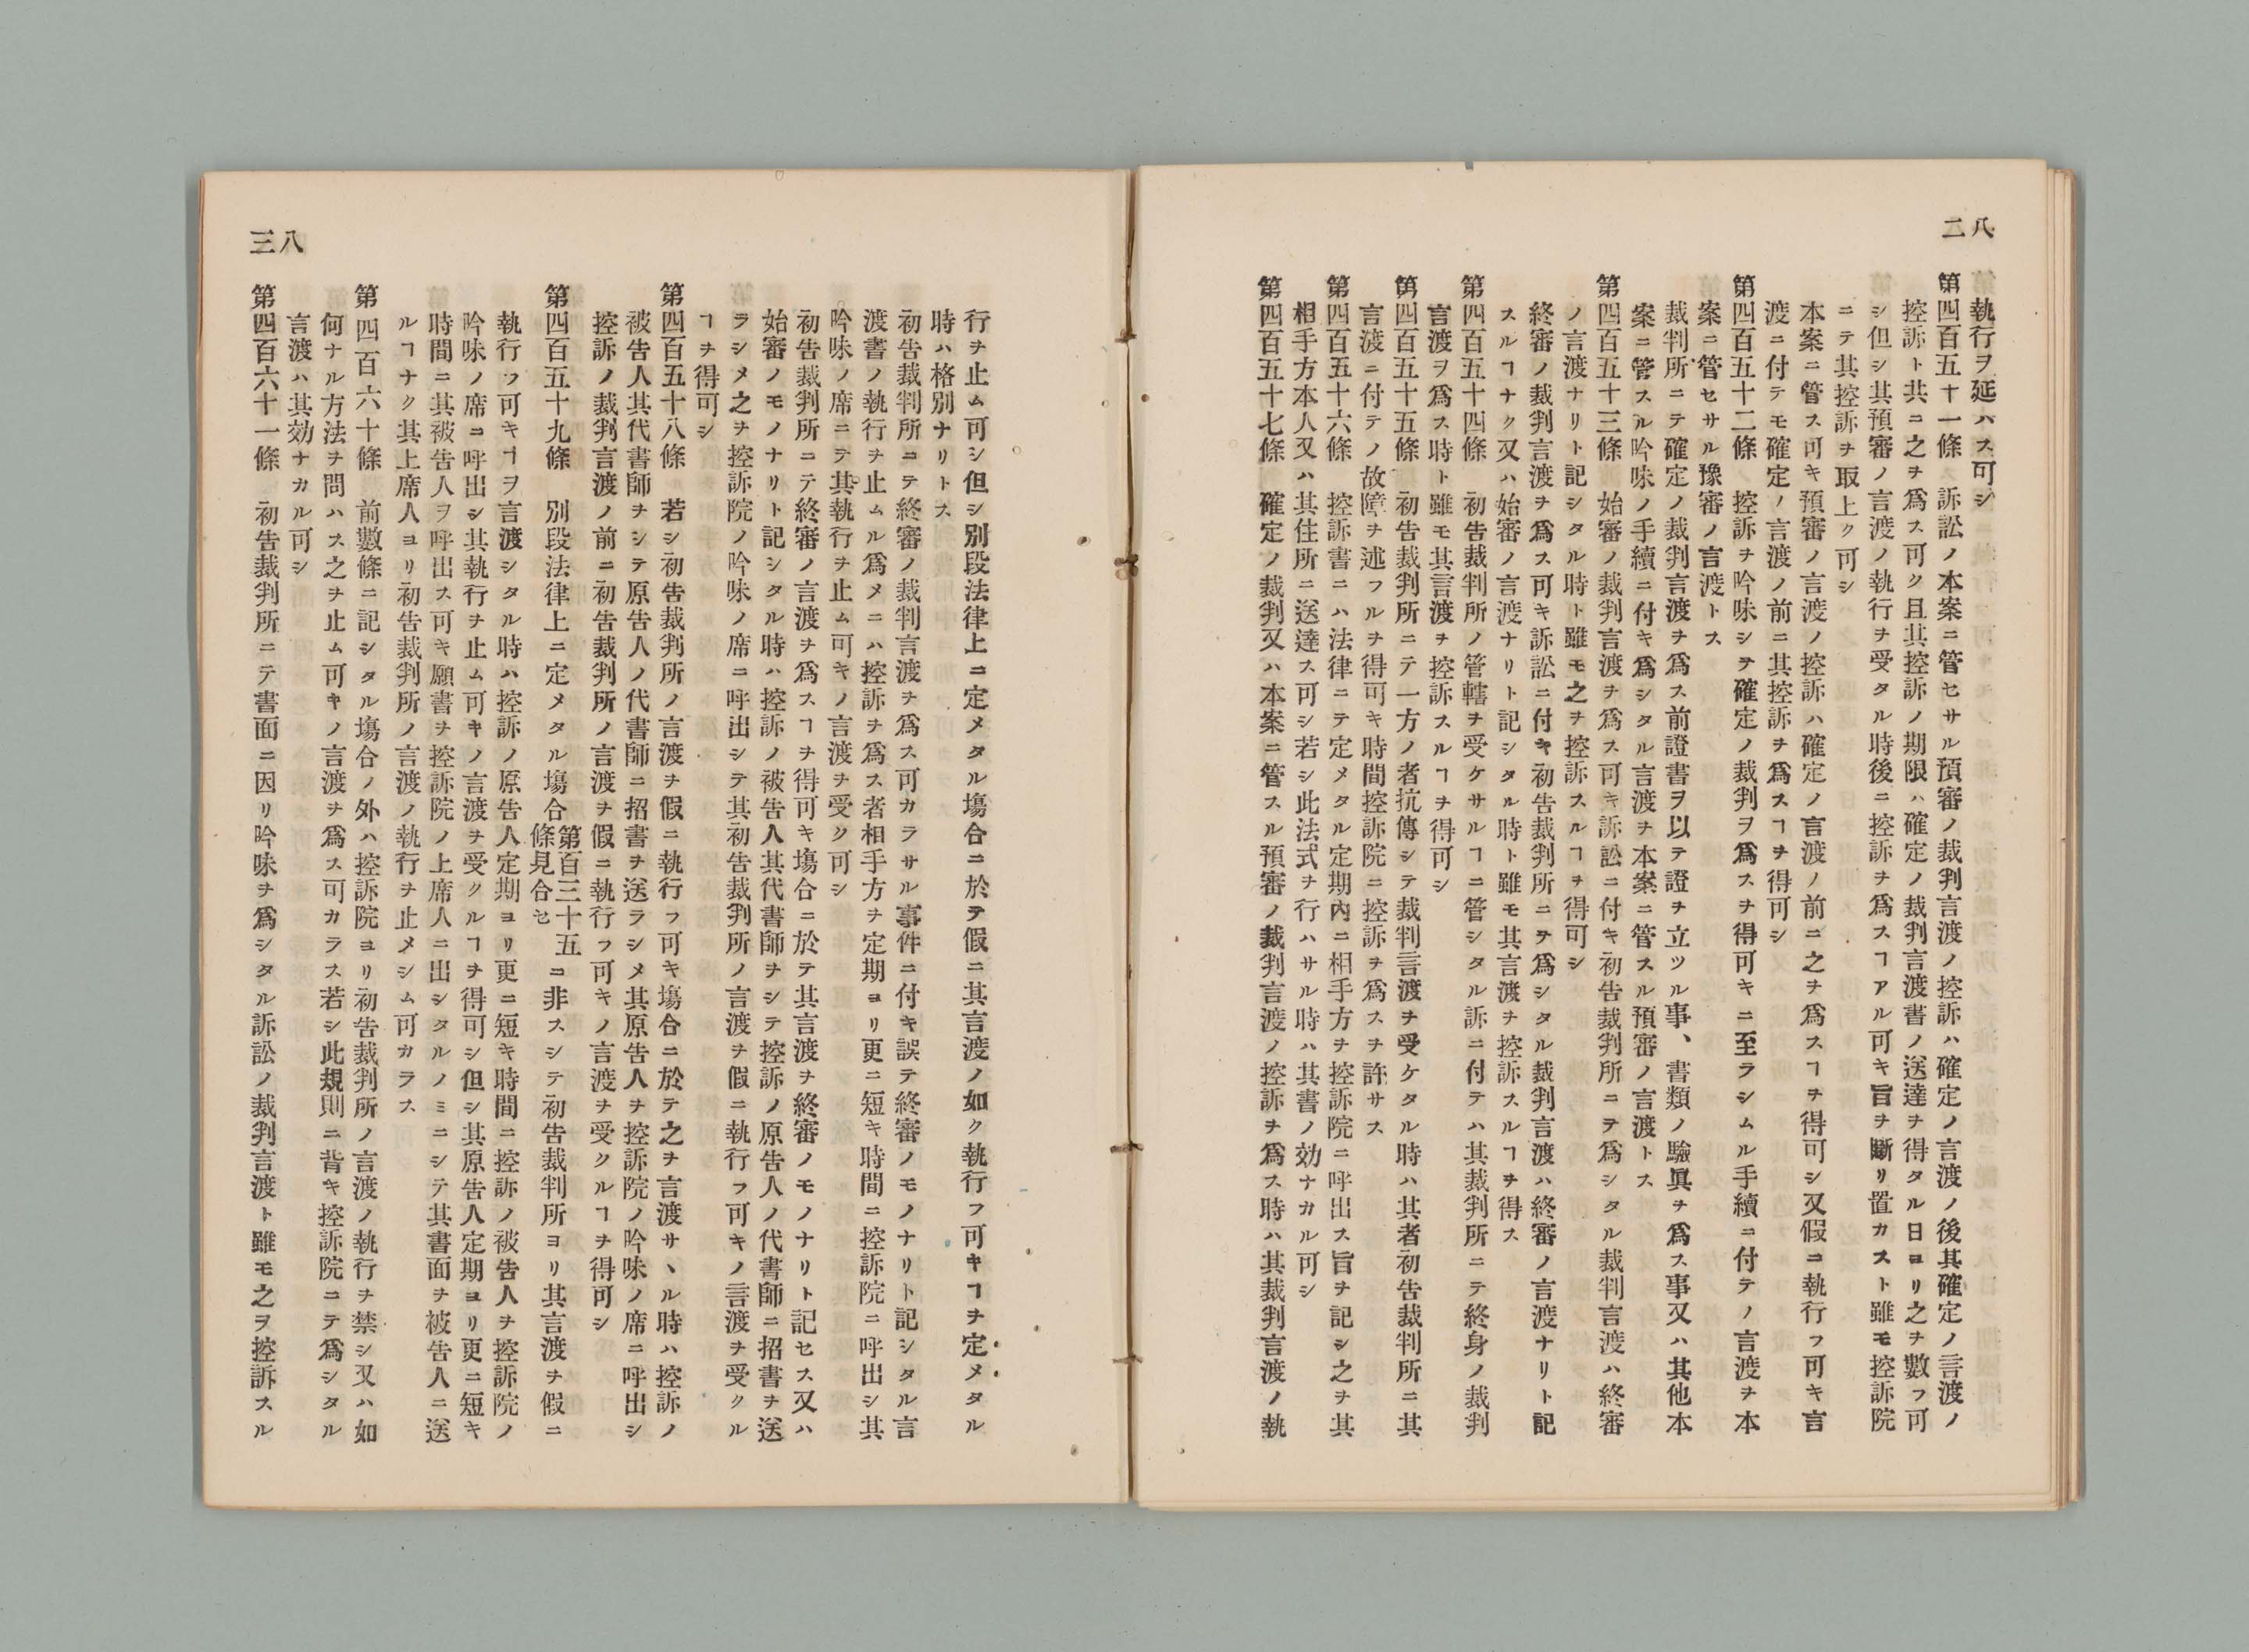 八二
執行ヲ延ハス可シ
第四百五十一條　訴訟ノ本案ニ管セサル預審ノ裁判言渡ノ控訴ハ確定ノ言渡ノ後其確定ノ言渡ノ
控訴ト共ニ之ヲ爲ス可ク且其控訴ノ期限ハ確定ノ裁判言渡書ノ送達ヲ得タル日ヨリ之ヲ數フ可
シ但シ其預審ノ言渡ノ執行ヲ受タル時後ニ控訴ヲ爲スヿアル可キ旨ヲ斷リ置カスト雖モ控訴院
ニテ其控訴ヲ取上ク可シ
本案ニ管ス可キ預審ノ言渡ノ控訴ハ確定ノ言渡ノ前ニ之ヲ爲スヿヲ得可シ又假ニ執行フ可キ言
渡ニ付テモ確定ノ言渡ノ前ニ其控訴ヲ爲スヿヲ得可シ
第四百五十二條　控訴ヲ吟味シテ確定ノ裁判ヲ爲スヲ得可キニ至ラシムル手續ニ付テノ言渡ヲ本
案ニ管セサル豫審ノ言渡トス
裁判所ニテ確定ノ裁判言渡ヲ爲ス前證書ヲ以テ證ヲ立ツル事、書類ノ驗眞ヲ爲ス事又ハ其他本
案ニ管スル吟味ノ手續ニ付キ爲シタル言渡ヲ本案ニ管スル預審ノ言渡トス
第四百五十三條　始審ノ裁判言渡ヲ爲ス可キ訴訟ニ付キ初告裁判所ニテ爲シタル裁判言渡ハ終審
ノ言渡ナリト記シタル時ト雖モ之ヲ控訴スルヿヲ得可シ
終審ノ裁判言渡ヲ爲ス可キ訴訟ニ付キ初告裁判所ニテ爲シタル裁判言渡ハ終審ノ言渡ナリト記
スルヿナク又ハ始審ノ言渡ナリト記シタル時ト雖モ其言渡ヲ控訴スルヿヲ得ス
第四百五十四條　初告裁判所ノ管轄ヲ受ケサルヿニ管シタル訴ニ付テハ其裁判所ニテ終身ノ裁判
言渡ヲ爲ス時ト雖モ其言渡ヲ控訴スルヿヲ得可シ
第四百五十五條　初告裁判所ニテ一方ノ者抗傳シテ裁判言渡ヲ受ケタル時ハ其者初告裁判所ニ其
言渡ニ付テノ故障ヲ述フルヲ得可キ時間控訴院ニ控訴ヲ爲スヲ許サス
第四百五十六條　控訴書ニハ法律ニテ定メタル定期內ニ相手方ヲ控訴院ニ呼出ス旨ヲ記シ之ヲ其
相手方本人又ハ其住所ニ送達ス可シ若シ此法式ヲ行ハサル時ハ其書ノ効ナカル可シ
第四百五十七條　確定ノ裁判又ハ本案ニ管スル預審ノ裁判言渡ノ控訴ヲ爲ス時ハ其裁判言渡ノ執
八三
行ヲ止ム可シ但シ別段法律上ニ定メタル塲合ニ於テ假ニ其言渡ノ如ク執行フ可キヿヲ定メタル
時ハ格別ナリトス
初告裁判所ニテ終審ノ裁判言渡ヲ爲ス可カラサル事件ニ付キ誤テ終審ノモノナリト記シタル言
渡書ノ執行ヲ止ムル爲メニハ控訴ヲ爲ス者相手方ヲ定期ヨリ更ニ短キ時間ニ控訴院ニ呼出シ其
吟味ノ席ニテ其執行ヲ止ム可キノ言渡ヲ受ク可シ
初告裁判所ニテ終審ノ言渡ヲ爲スヿヲ得可キ塲合ニ於テ其言渡ヲ終審ノモノナリト記セス又ハ
始審ノモノナリト記シタル時ハ控訴ノ被告人其代書師ヲシテ控訴ノ原告人ノ代書師ニ招書ヲ送
ラシメ之ヲ控訴院ノ吟味ノ席ニ呼出シテ其初告裁判所ノ言渡ヲ假ニ執行フ可キノ言渡ヲ受クル
ヿヲ得可シ
第四百五十八條　若シ初告裁判所ノ言渡ヲ假ニ執行フ可キ塲合ニ於テ之ヲ言渡サヽル時ハ控訴ノ
被告人其代書師ヲシテ原告人ノ代書師ニ招書ヲ送ラシメ其原告人ヲ控訴院ノ吟味ノ席ニ呼出シ
控訴ノ裁判言渡ノ前ニ初告裁判所ノ言渡ヲ假ニ執行フ可キノ言渡ヲ受クルヿヲ得可シ
第四百五十九條　別段法律上ニ定メタル塲合第百三十五條見合セニ非スシテ初告裁判所ヨリ其言渡ヲ假ニ
執行フ可キヿヲ言渡シタル時ハ控訴ノ原告人定期ヨリ更ニ短キ時間ニ控訴ノ被告人ヲ控訴院ノ
吟味ノ席ニ呼出シ其執行ヲ止ム可キノ言渡ヲ受クルヿヲ得可シ但シ其原告人定期ヨリ更ニ短キ
時間ニ其被告人ヲ呼出ス可キ願書ヲ控訴院ノ上席人ニ出シタルノミニシテ其書面ヲ被告人ニ送
ルヿナク其上席人ヨリ初告裁判所ノ言渡ノ執行ヲ止メシム可カラス
第四百六十條　前數條ニ記シタル塲合ノ外ハ控訴院ヨリ初告裁判所ノ言渡ノ執行ヲ禁シ又ハ如
何ナル方法ヲ問ハス之ヲ止ム可キノ言渡ヲ爲ス可カラス若シ此規則ニ背キ控訴院ニテ爲シタル
言渡ハ其効ナカル可シ
第四百六十一條　初告裁判所ニテ書面ニ因リ吟味ヲ爲シタル訴訟ノ裁判言渡ト雖モ之ヲ控訴スル